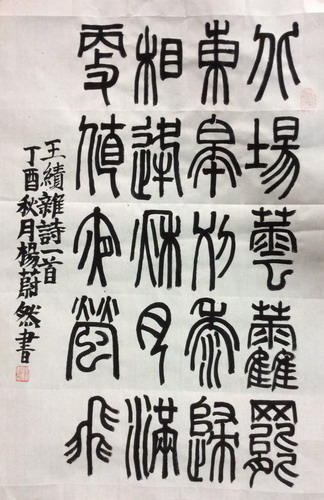 北場蕓藿罷
東皋刈黍歸
相逢秋月滿
更值夜螢飛
王績雜詩一首
丁酉秋月楊蔚然書